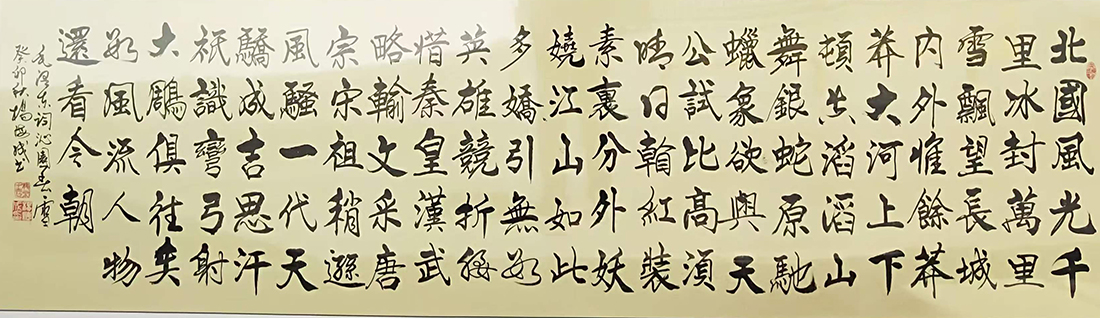 北國風光千
里冰封萬里
雪飄望長城
内外惟餘莽
莽大河上下
頓失滔滔山
舞銀蛇原馳
蠟象欲與天
公試比高須
晴日翰紅裝
素裹分外妖
嬈江山如此
多嬌引無數
英雄競折腰
惜秦皇漢武
略輸文采唐
宗宋祖稍遜
風騷一代天
驕成吉思汗
祇識彎弓射
大鵰俱往矣
數風流人物
還看今朝
毛澤东詞沁園春雪
癸卯秋楊成书